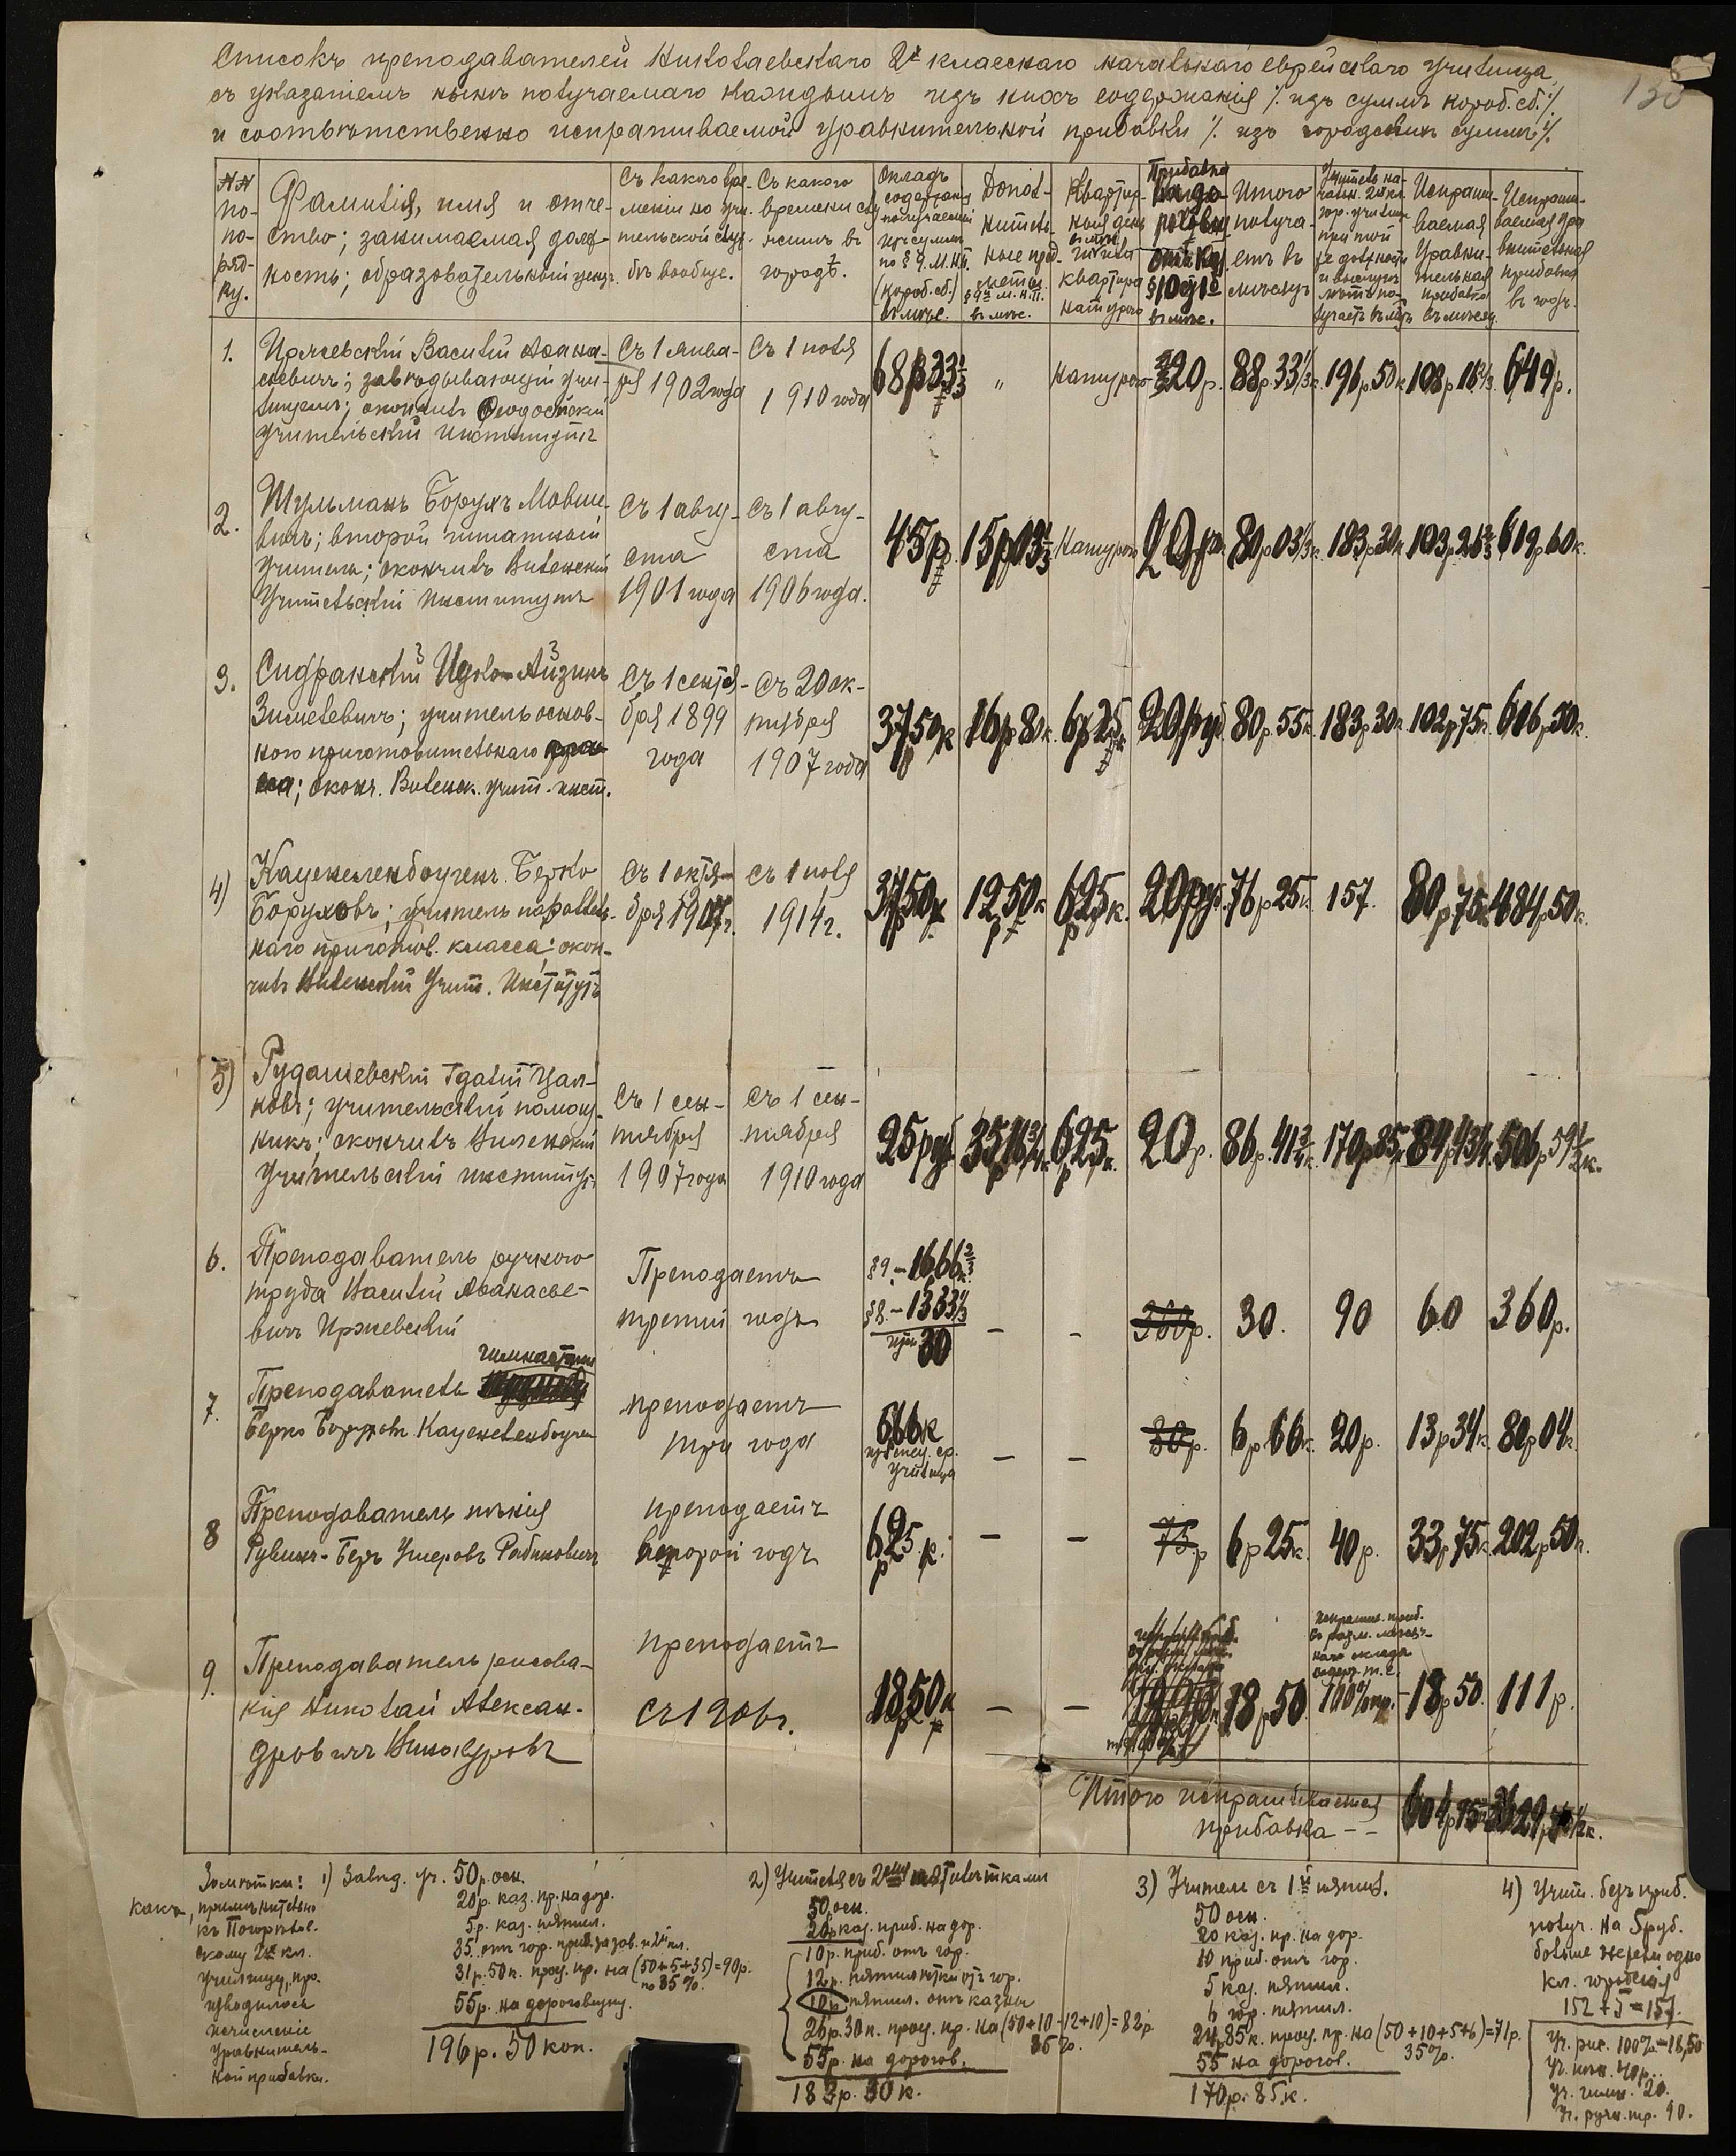 Списокъ преподавателей Николаевскаго 2х класснаго начальнаго еврейскаго училища
съ указаніемъ нынѣ получаемаго каждымъ изъ нихъ содержанія /. изъ суммъ короб. сб. /.
и соотвѣтственно испрашиваемой уравнительной прибавки /. изъ городскихъ суммъ /.
130
№№ по-по-ряд-ку.
Фамилія, имя и отче-
ство; занимаемая долж-
ность; образовательный ценз.
Съ какого вре-
мени на учи-
тельской служ-
бѣ вообще.
Съ какого
времени слу
житъ въ
городѣ.
Окладъ
содержанія
получаемый
изъ суммъ
по § 9. М.Н.П.
(короб. сб.)
въ мѣс.
Допол-
нитель-
ные пред-
меты
§ 9 М.Н.П.
въ мѣс.
Квартир-
ныя день
въ мѣс.
или
квартира
натурою
Прибавка
на до-
роговиз
§ 10
въ мѣс.
Итого
получа-
етъ въ
мѣсяцъ
Учитель на-
чальн. 2х кл.
гор. училищ
при той
же должности
и выслугѣ
лѣтъ по-
лучаетъ въ мѣс
Испраши-
ваемая
уравни-
тельная
прибавка
въ мѣсяц
Испраши-
ваемая ура
внительная
прибавка
въ годъ.
1. Иржевскій Василій Афана-
сьевичъ; завѣдывающій учи-
лищемъ; окончилъ Феодосійскій
Учительскій Институтъ
Съ 1 янва-
ря 1902 года
Съ 1 июля
1910 года
68р33⅓ " натурою 20р. 88р.33⅓к. 196р.50к 108р16⅔ 649р.
2. Шульманъ Борухъ Мовше-
вичъ; второй штатный
учитель; окончилъ Виленскій
Учительскій институтъ
Съ 1 авгу-
ста
1901 года
Съ 1 авгу-
ста
1906 года.
45р. 15р03⅓ Натурою 20р. 80р03⅓к. 183р30к 103р26⅔ 619р60к.
3. Сидранскій Ицко-Айзикъ
Зимелевичъ; учитель основ-
ного приготовительнаго клас-
са; оконч. Виленск. учит. инст.
Съ 1 сентя-
бря 1899
года
Съ 20 ок-
тября
1907 года
37р50к 16р80к. 6р25к 20руб 80р.55к. 183р30к 102р75к. 616р50к.
4) Каценеленбогенъ Берко
Боруховъ; учитель параллель-
наго приготов. класса; окон-
чилъ Виленскій Учит. Институтъ
Съ 1 октя-
бря 1907г.
Съ 1 июля
1914г.
37р50к 12р50к 6р25к. 20руб. 76р25к. 157. 80р75к 484р50к.
5) Рудашевскій Гдалій Цал-
ковъ; учительскій помощ-
никъ; окончилъ Виленскій
Учительскій институт.
Съ 1 сен-
тября
1907 года
Съ 1 сен-
тября
1910 года
25руб 35р16¾к. 6р25к. 20р. 86р.41¾к. 170р85к 84р43¼к. 506р59½к.
6. Преподаватель ручного
труда Василій Афанасье-
вичъ Иржевскій
Преподаетъ
третій годъ
§9.-16р66⅔к.
§8.-13р33⅓
30
- - 360р. 30. 90 60 360р.
гимнастики
7. Преподаватель
Берко Боруховъ Каценеленбоген
преподаетъ
три года
6р66к
училища
- - 80р. 6р66к. 20р. 13р34к. 80р04к.
8 Преподаватель пѣнія
Рувинъ-Беръ Ушеровъ Рабиновичъ
преподаетъ
второй годъ
6р25к. - - 75.р 6р25к. 40р. 33р75к. 202р50к.
9. Преподаватель рисова-
нія Николай Алексан-
дровичъ Винокуровъ
преподаетъ
съ 1906г.
18р50к - - 18р50.
Испрашив. приб.
въ разм. мѣсяч-
наго оклада
содерж. т.е.
100%пр. - 18р50. 111р.
Итого испрашивается
прибавка -- 604р95к 3629р½к.
Замѣтки:
какъ, примѣнительно
къ Погорѣль-
скому 2х кл.
училищу, про-
изводилось
исчисленіе
уравнитель-
ной прибавки.
1) Завѣд. уч. 50р. осн.
20р. каз. пр. на дор.
5р. каз. пятил.
35. отъ гор. приб. за зав. и 2й кл.
31р.50к. проц. пр. на (50+5+35)=90р.
по 35%.
55р. на дороговизну.
196р. 50 коп.
2) Учителя съ 2мя пятилѣтками
50 осн.
20р каз. приб. на дор.
10р. приб. отъ гор.
12р. пятилѣтки отъ гор.
10р. пятил. отъ казны
26р.30к. проц. пр. на (50+10+12+10)=82р
35%.
55р. на дорогов.
183р. 30к.
3) Учители съ 1й пятил.
50 осн.
20 каз. пр. на дор.
10 приб. отъ гор.
5 каз. пятил.
6 гор. пятил.
24р85к. проц. пр. на (50+10+5+6)=71р.
35%.
55 на дорогов.
170р. 85к.
4) Учит. безъ приб.
получ. на 5руб.
больше нежели одно
кл. городскія
152+5=157.
Уч. рис. 100%=18,50
Уч. пѣн. 40р.
Уч. гимн. 20.
Уч. ручн. тр. 90.